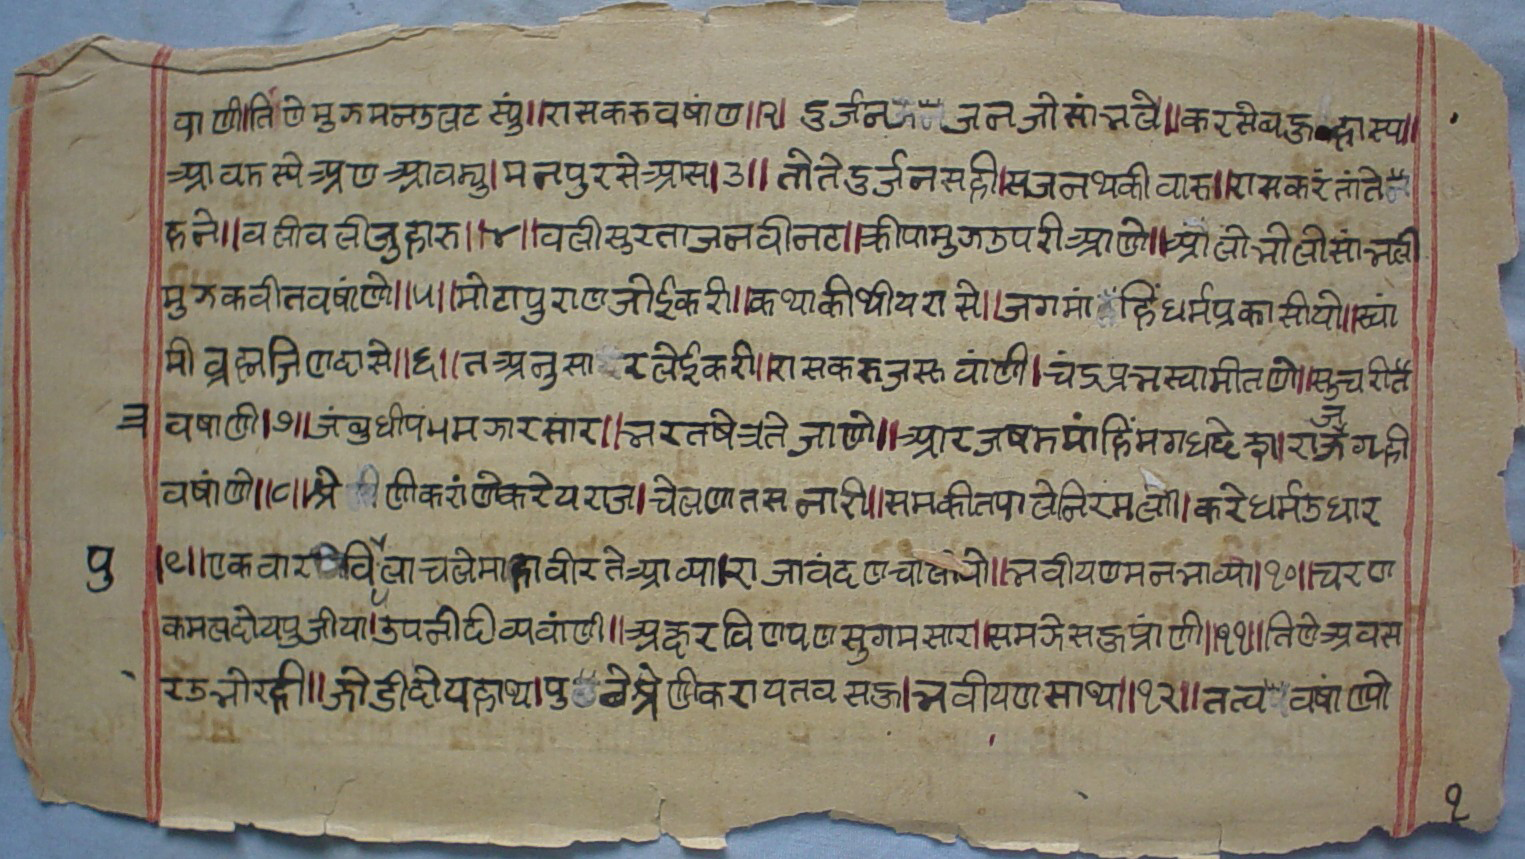 वाणी।तिणे मुझ मन उलट स्युं॥रास करु वषांण॥२। दुर्जन जन जो सांभले॥कर से बहु हास्य॥
मन पुर से आस।३॥ तो ते दुर्जन सही।सजन थकी वारु॥रास करंतां ते
हने॥वली वली जुहारु॥४॥वली सुरता जन वीनवु॥क्रीपा मुझ उपरी आणे॥भोली सांभली
मुझ कवीत वषांणे॥५॥मोटा पुराण जोई करी॥कथा कीधी य रासे॥जग मांहिं धर्म प्रकासीयो॥स्वां
मी ब्रह्म जिणदासे॥६॥त अनुसार लेई करी॥रास करु जस वांणी।चंद्रप्रभ स्वामी तणो॥सुचरीत
वषाणी।७॥जंबुधीप मझार सार॥भरत षेत्र ते जाणो॥आरज षंड मांहिं मगध देश।राजग्रही
वषांणे॥८॥श्रेणीक रांणो करे य राज।चेलणा तस नारी॥समकीत पाले निरमलो॥करे धर्म उधार
।९॥एक वार विपुलाचले माहावीर ते आव्या।राजा वंदण चालीयो॥भवीयण मन भाव्यो।१०॥चरण
कमल दोय पुजीया।उपनी दीव्य वांणी॥अक्षर विण पण सुगम सार॥समझे सहु प्रांणी॥११॥तिणे अवस
र उभो रही॥जोडी दोय हाथ।पुछे श्रेणीक राय तव सहु।भवीयण साथ॥१२॥तत्व वषांणो
१